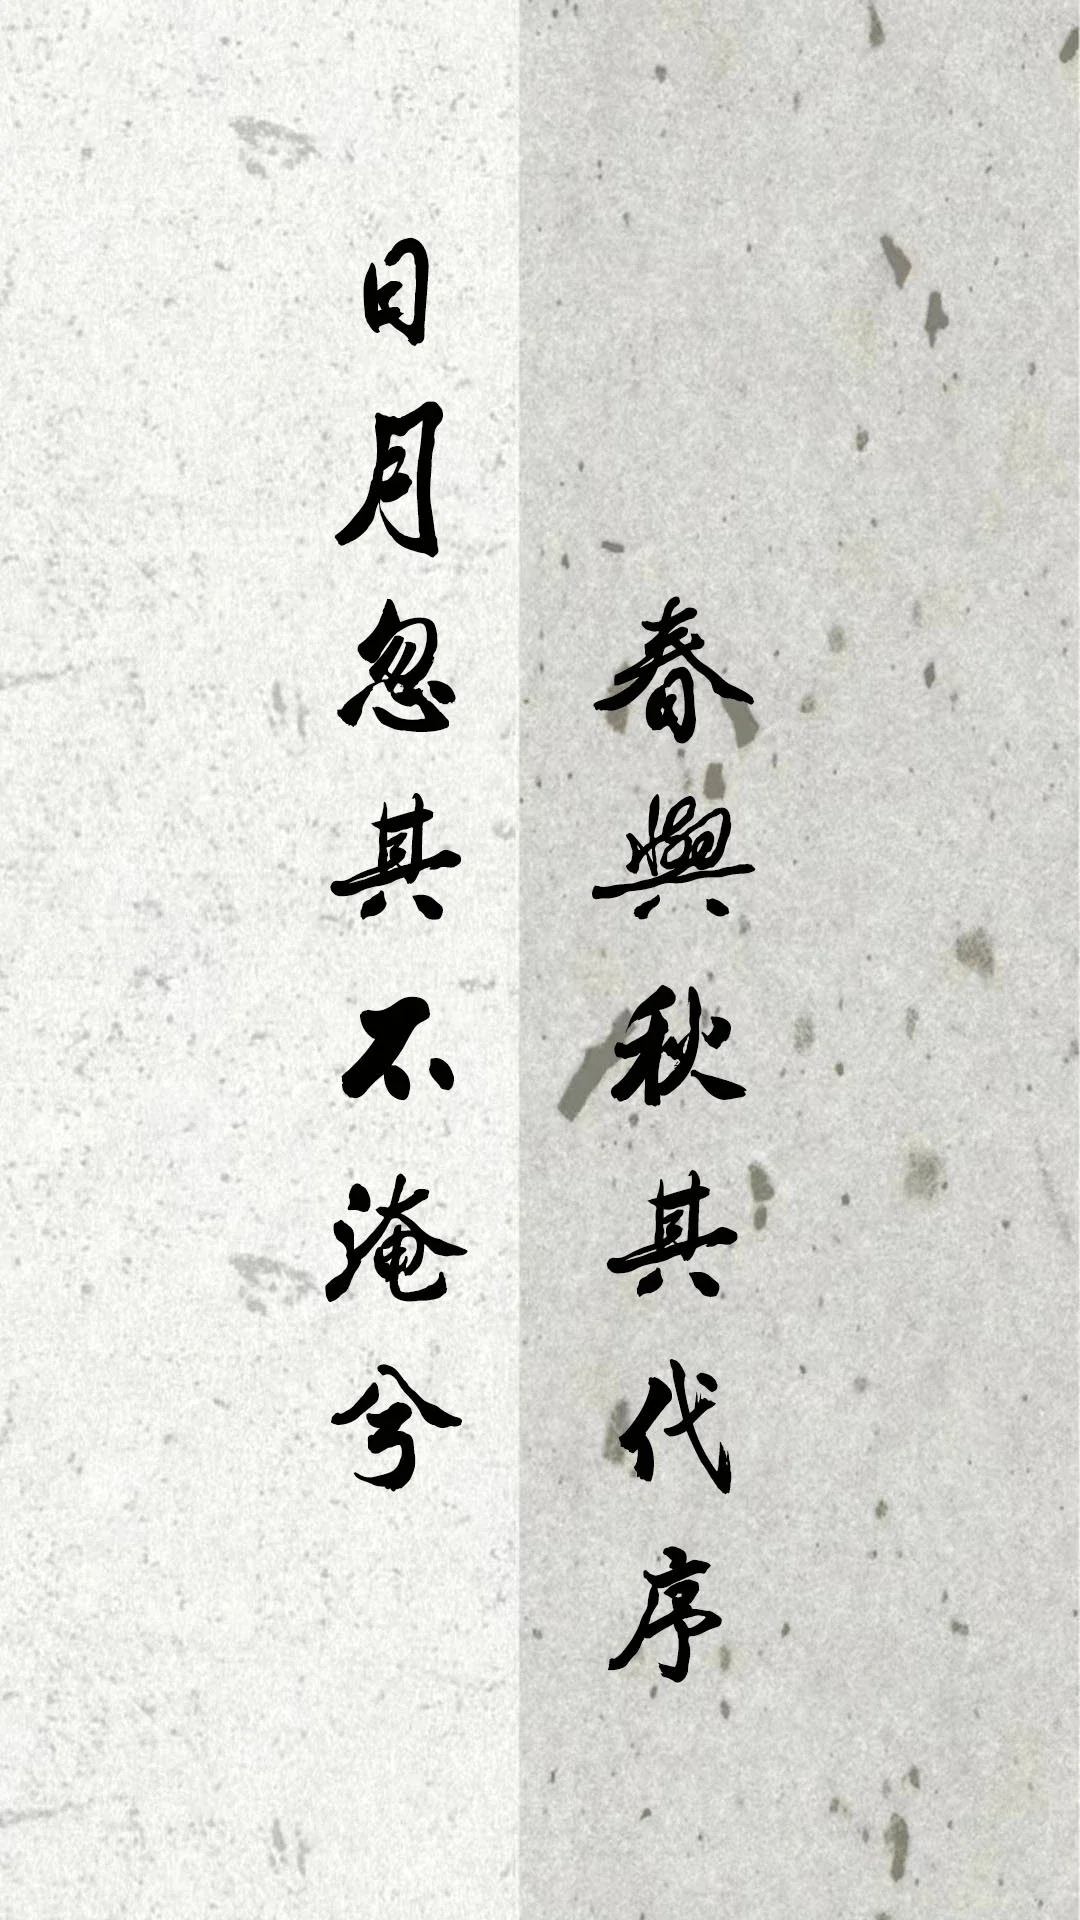 日月忽其不淹兮
春與秋其代序